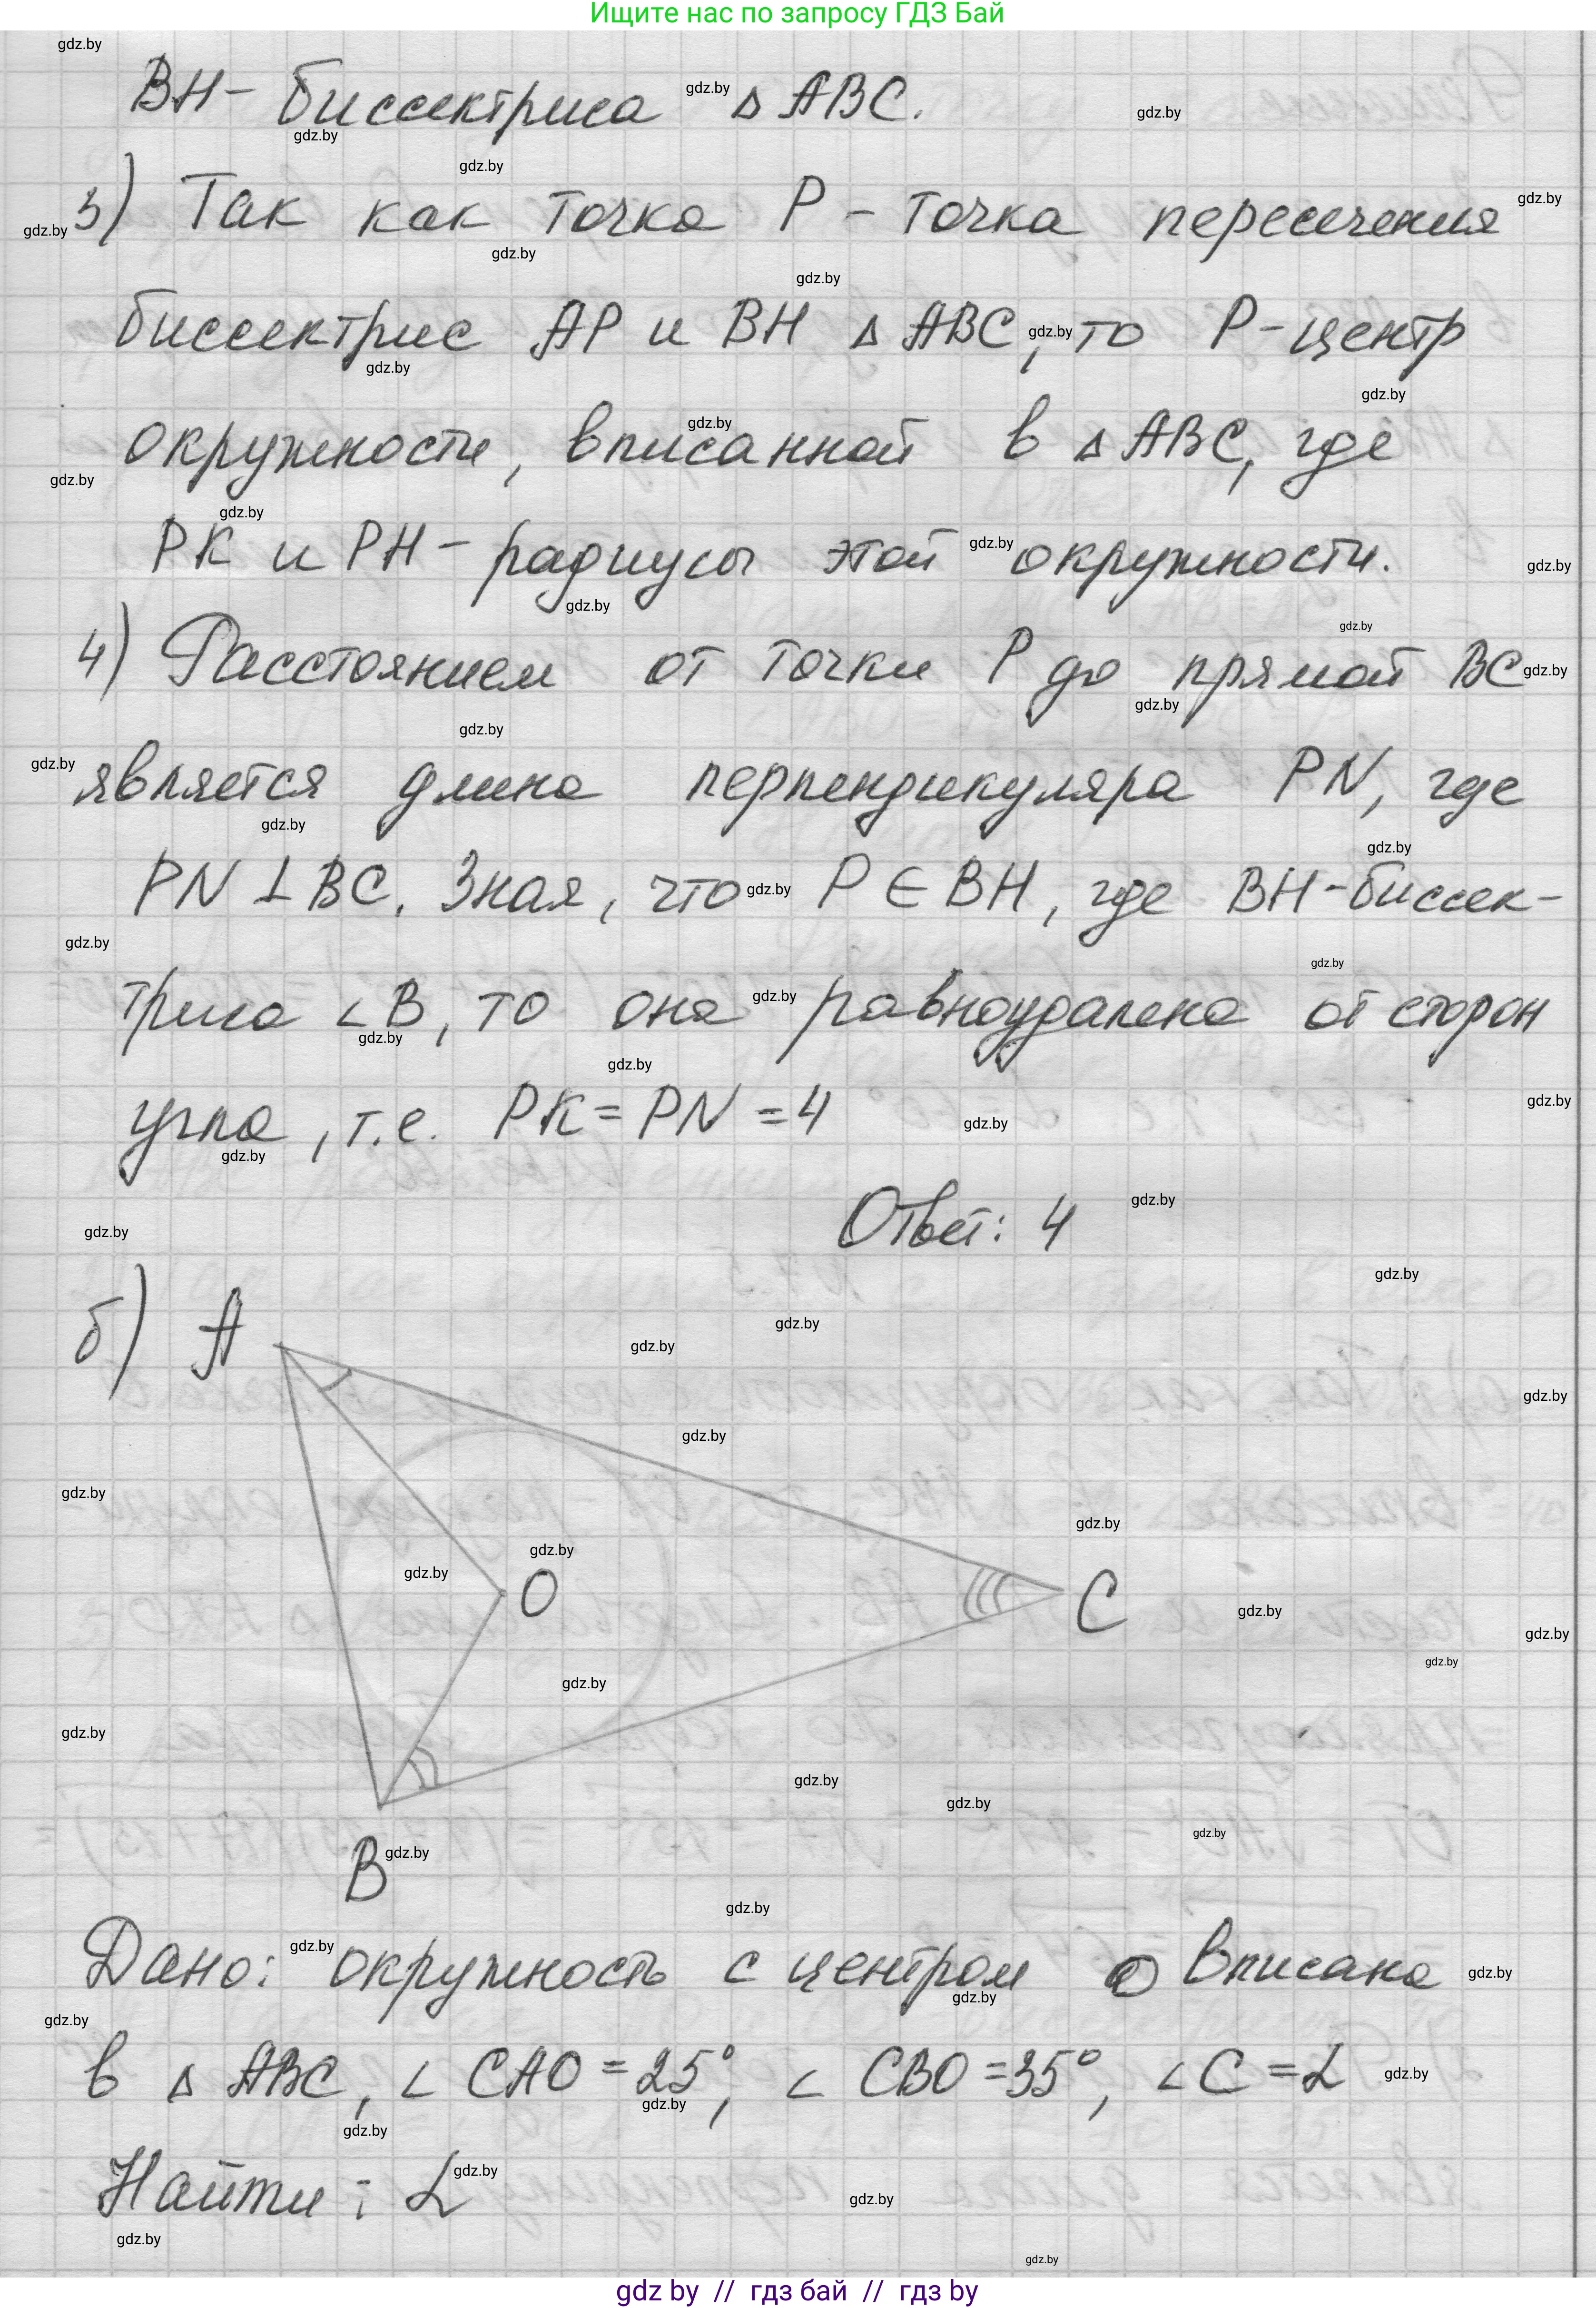 Ищите нас по запросу ГДЗ Бай
BH - биссектриса △ ABC.
3) Так как точка P - точка пересечения
биссектрис AP и BH △ ABC, то P - центр
окружности, вписанной в △ ABC, где
PK и PH - радиусы этой окружности.
4) Расстоянием от точки P до прямой BC
является длина перпендикуляра PN, где
PN ⊥ BC. Зная, что P ∈ BH, где BH - биссек-
триса ∠B, то она равноудалена от сторон
угла, т.е. PK = PN = 4
Ответ: 4
б) A
O
C
B
Дано: окружность с центром O вписана
в △ ABC, ∠ CAO = 25°, ∠ CBO = 35°, ∠ C = α
Найти: α
gdz by // гдз бай // гдз by